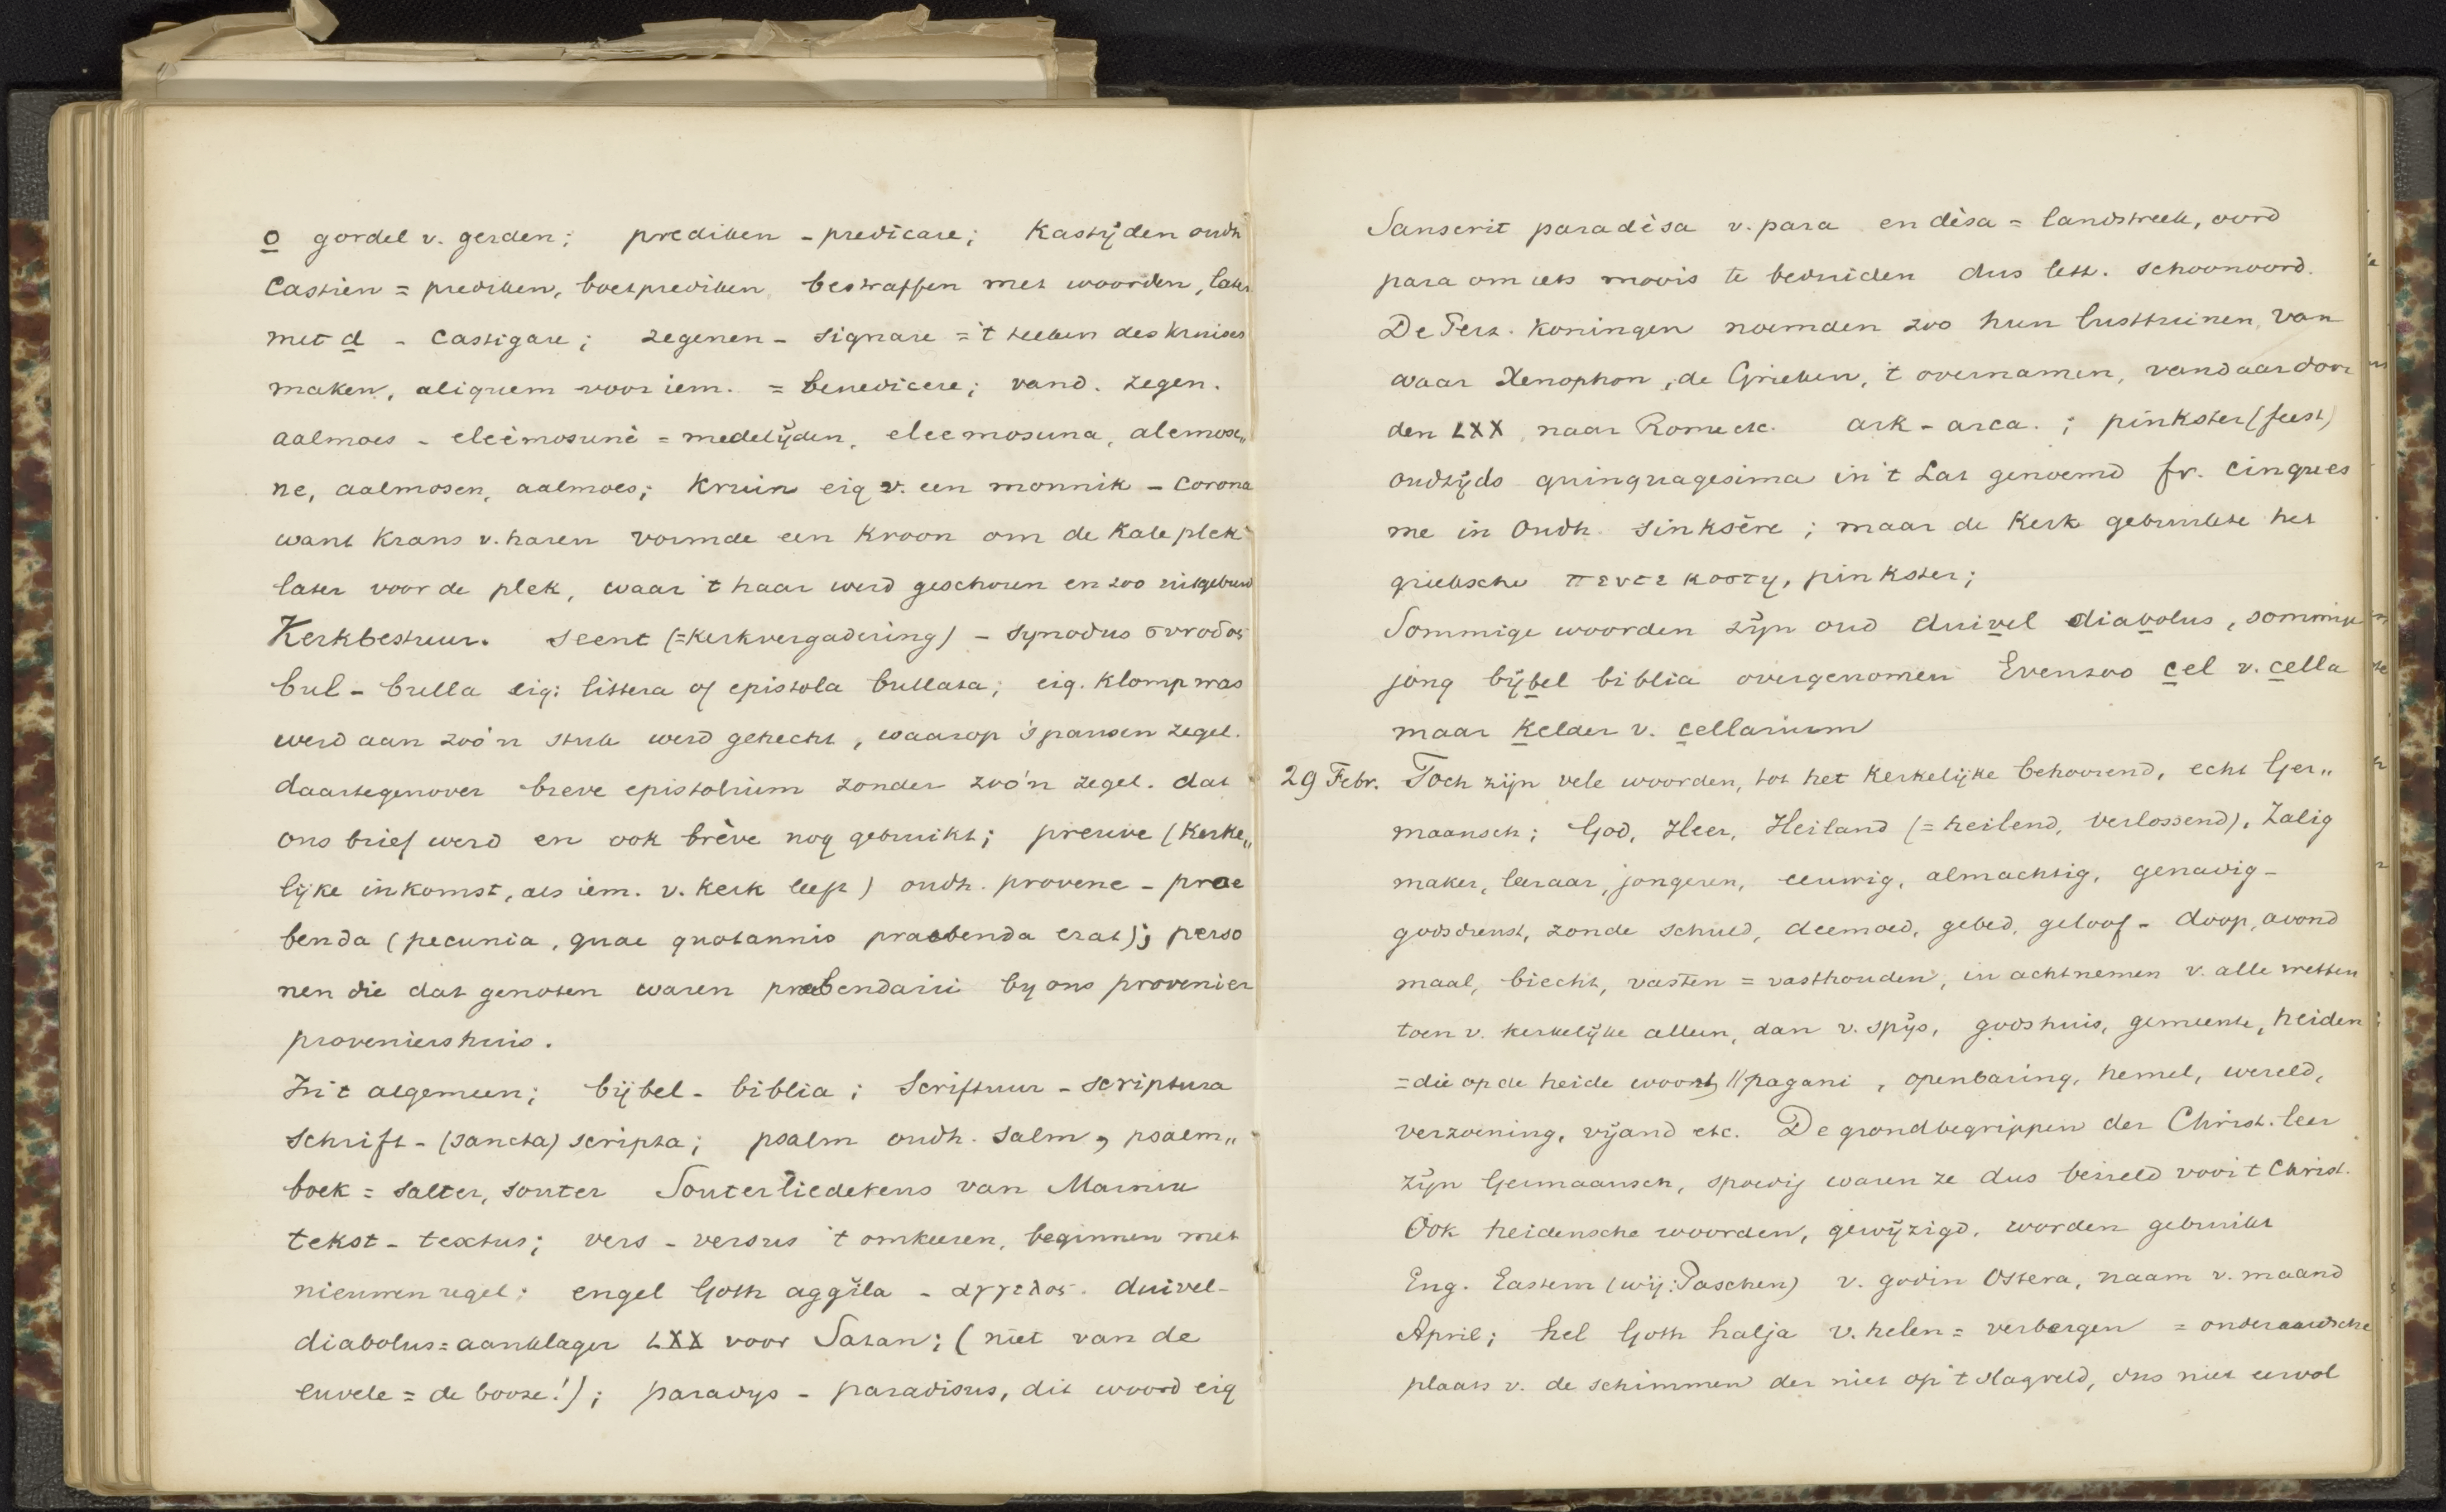 o gordel v. gerden; prediken - predicare; Kastijden oudh
castien = prediken, boetprediken bestraffen met woorden, later
met d - castigare; zegenen - signare = 't teeken des kruises
maken, aliquem voor iem. = benedicere; vand. zegen.
aalmoes - eleèmosunè = medelijden, eleemosuna, alemosu„
ne, aalmosen, aalmoes; kruin eig v. een monnik - corona
want krans v. haren vormde een kroon om de kale plek
later voor de plek, waar 't haar werd geschoren en zoo uitgebreid
Kerkbestuur. seent (=kerkvergadering) - synodus συνοδος
bul - bulla eig: littera of epistola bullata; eig. klomp was
werd aan zoo'n stuk werd gehecht, waarop 's pausen zegel.
daartegenover breve epistolium zonder zoo'n zegel. dat
ons brief werd en ook brève nog gebruikt; preuve (kerke„
lijke inkomst, als iem. v. kerk leeft) oudh. provene - prae
benda (pecunia, quae quotannis praebenda erat); perso
nen die dat genoten waren praebendarii by ons provenier
proveniershuis.
In 't algemeen; bijbel - biblia; Scriftuur - scriptura
schrift - (sancta) scripta; psalm oudh. salm, psalm„
boek = salter, souter Souterliedekens van Marnix
tekst - textus; vers - versus 't omkeeren, beginnen met
nieuwen regel; engel Goth aggila - αγγελος. duivel -
diabolus = aanklager LXX voor Satan; (niet van de
euvele = de booze!); paradys - paradisus, dit woord eig
Sanscrit paradèsa v. para en dèsa = landstreek, oord
para om iets moois te beduiden dus lett. schoonoord.
De Perz. koningen noemden zoo hun lusttuinen, van
waar Xenophon, de Grieken, 't overnamen, vandaar door
den LXX, naar Rome etc. ark - arca.; pinkster (feest)
oudtijds quinquagesima in 't Lat genoemd fr. cinques
me in Oudh. sinksère; maar de kerk gebruikte het
grieksche πεντεκοστη, pinkster;
Sommige woorden zijn oud duivel diabolus, sommige
jong bijbel biblia overgenomen Evenzoo cel v. cella
maar kelder v. cellarium
29 Febr. Toch zijn vele woorden, tot het kerkelijke behoorend, echt Ger„
maansch; God, Heer, Heiland (= heilend, verlossend), Zalig
maker, leeraar, jongeren, eeuwig, almachtig, genadig -
godsdienst, zonde schuld, deemoed, gebed, geloof - doop, avond
maal, biecht, vasten = vasthouden, in acht nemen v. alle wetten
toen v. kerkelijke alleen, dan v. spijs, godshuis, gemeente, heiden
= die op de heide woont, // pagani, openbaring, hemel, wereld,
verzoening, vijand etc. De grondbegrippen der Christ. leer
zijn Germaansch, spoedig waren ze dus bezield voor 't Christ.
Ook heidensche woorden, gewijzigd, worden gebruikt
Eng. Eastern (wij: Paschen) v. godin Ostera, naam v. maand
April; hel Goth halja v. helen = verbergen = onderaardsche
plaats v. de schimmen der niet op 't slagveld, dus niet eervol